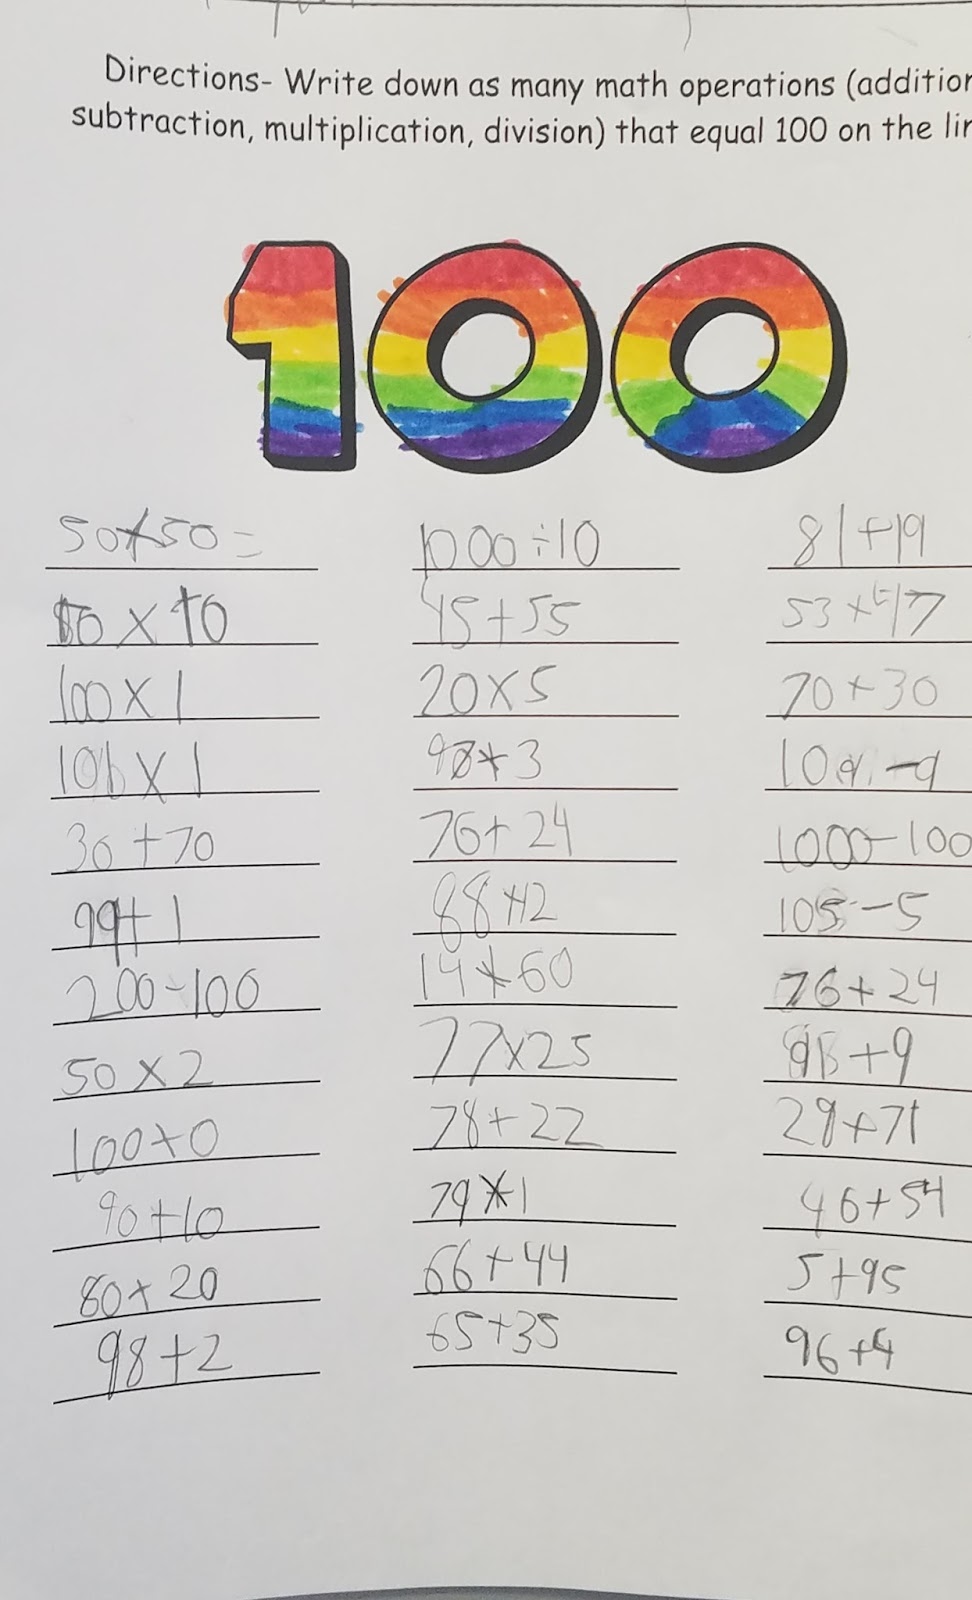 Directions- Write down as many math operations (addition
subtraction, multiplication, division) that equal 100 on the lin
100
50+50=
10 x 10
100 x 1
101 x 1
30+70
99+1
200-100
50 x 2
100+0
90+10
80+20
98+2
1000÷10
45+55
20x5
+3
76+24
88+12
14+60
77x25
78+22
79+1
66+44
65+35
81+19
53+47
70+30
109-9
1000-100
105-5
76+24
+9
29+71
46+54
5+95
96+4